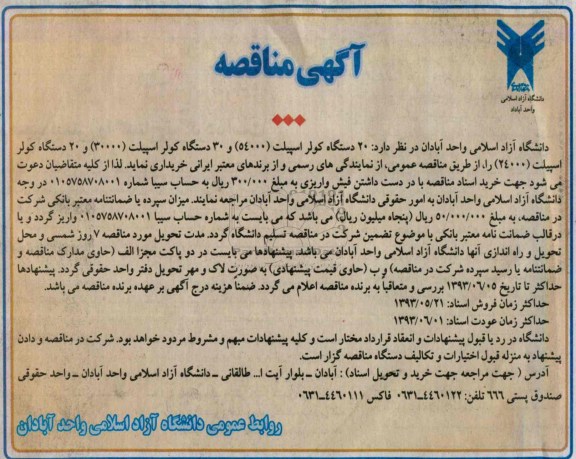 دانشگاه آزاد اسلامی
واحد آبادان
آگهی مناقصه
دانشگاه آزاد اسلامی واحد آبادان در نظر دارد: ۲۰ دستگاه کولر اسپیلت (۵۴۰۰۰) و ۳۰ دستگاه کولر اسپیلت (۳۰۰۰۰) و ۲۰ دستگاه کولر
اسپیلت (۲۴۰۰۰) را، از طریق مناقصه عمومی، از نمایندگی های رسمی و از برندهای معتبر ایرانی خریداری نماید. لذا از کلیه متقاضیان دعوت
می شود جهت خرید اسناد مناقصه با در دست داشتن فیش واریزی به مبلغ ۳۰۰/۰۰۰ ریال به حساب سیبا شماره ۰۱۰۵۷۵۸۷۰۸۰۰۱ در وجه
دانشگاه آزاد اسلامی واحد آبادان به امور حقوقی دانشگاه آزاد اسلامی واحد آبادان مراجعه نمایند. میزان سپرده یا ضمانتنامه معتبر بانکی شرکت
در مناقصه، به مبلغ ۵۰/۰۰۰/۰۰۰ ریال (پنجاه میلیون ریال) می باشد که می بایست به شماره حساب سیبا ۰۱۰۵۷۵۸۷۰۸۰۰۱ واریز گردد و یا
درقالب ضمانت نامه معتبر بانکی با موضوع تضمین شرکت در مناقصه تسلیم دانشگاه گردد. مدت تحویل مورد مناقصه ۷ روز شمسی و محل
تحویل و راه اندازی آنها دانشگاه آزاد اسلامی واحد آبادان می باشد. پیشنهادها می بایست در دو پاکت مجزا الف (حاوی مدارک مناقصه و
ضمانتنامه یا رسید سپرده شرکت در مناقصه) و ب (حاوی قیمت پیشنهادی) به صورت لاک و مهر تحویل دفتر واحد حقوقی گردد. پیشنهادها
حداکثر تا تاریخ ۱۳۹۳/۰۶/۰۵ بررسی و متعاقباً به برنده مناقصه اعلام می گردد. ضمناً هزینه درج آگهی بر عهده برنده مناقصه می باشد.
حداکثر زمان فروش اسناد: ۱۳۹۳/۰۵/۲۱
حداکثر زمان عودت اسناد: ۱۳۹۳/۰۶/۰۱
دانشگاه در رد یا قبول پیشنهادات و انعقاد قرارداد مختار است و کلیه پیشنهادات مبهم و مشروط مردود خواهد بود. شرکت در مناقصه و دادن
پیشنهاد به منزله قبول اختیارات و تکالیف دستگاه مناقصه گزار است.
آدرس ( جهت مراجعه جهت خرید و تحویل اسناد) : آبادان ـ بلوار آیت ا... طالقانی ـ دانشگاه آزاد اسلامی واحد آبادان ـ واحد حقوقی
صندوق پستی ۶۶۶ تلفن: ۴۴۶۰۱۲۲-۰۶۳۱ فاکس ۴۴۶۰۱۱۱-۰۶۳۱
روابط عمومی دانشگاه آزاد اسلامی واحد آبادان